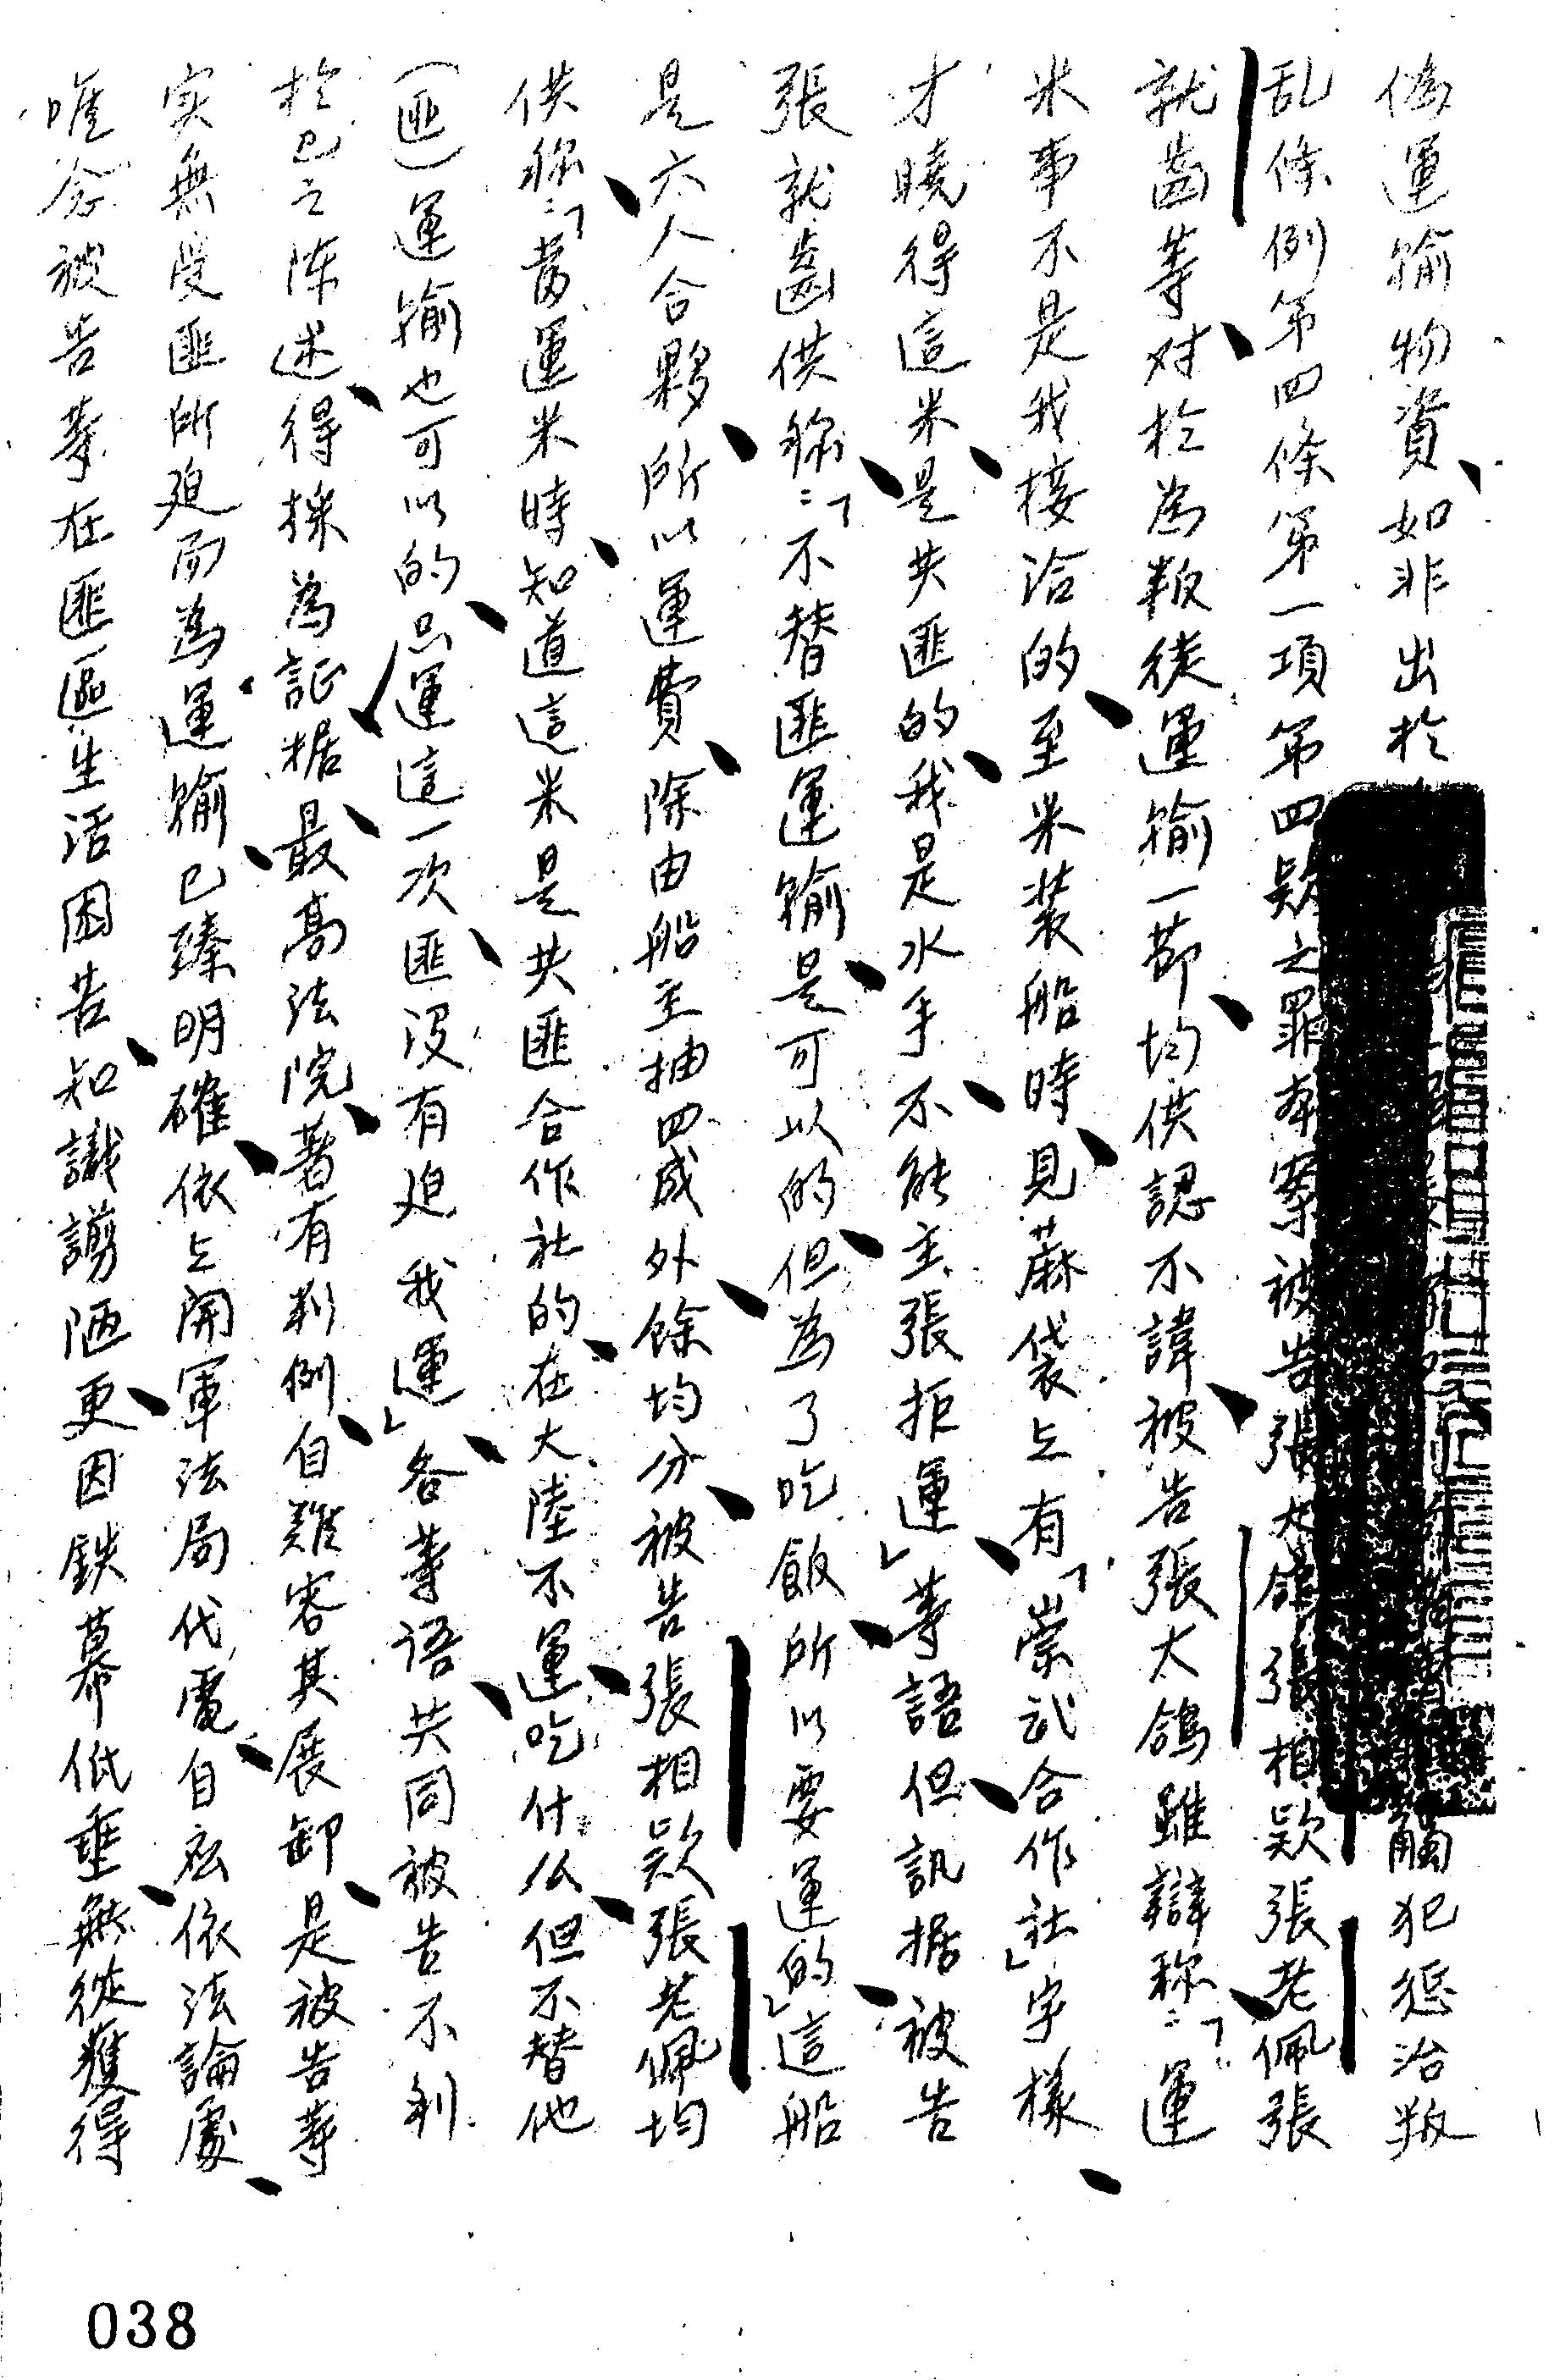 偽運輸物資、如非出於觸犯懲治叛
乱條例第四條第一項第四款之罪本案被告張太鴿張相欵張老佩張
就齒等、对於為叛徒運輸一節、均供認不諱、被告張太鴿雖辯称、：「運
米事不是我接洽的、至米裝船時、見蔴袋上有「崇武合作社」字樣、
才曉得這米、是共匪的、我是水手、不能主張拒運」、等語、但訊据被告
張就齒供称、：「不替匪運輸、是可以的、但為了吃飯、所以要運的」、這船
是六人合夥、所以運費、除由船主抽四成外、餘均分、被告張相欵張老佩均
供称、：「當運米時、知道這米是共匪合作社的、在大陸不運、吃什么、但不替他
（匪）運輸也可以的、只運這一次、匪沒有迫我運」、各等语、共同被告不利
於己之陈述、得採為証据、最高法院、著有判例、自難容其展卸、是被告等
实無受匪所迫而為運輸、已臻明確、依上開軍法局代電、自应依法論處、
唯念被告等在匪區生活困苦、知識譾陋、更因鉄幕低垂、無從獲得
038